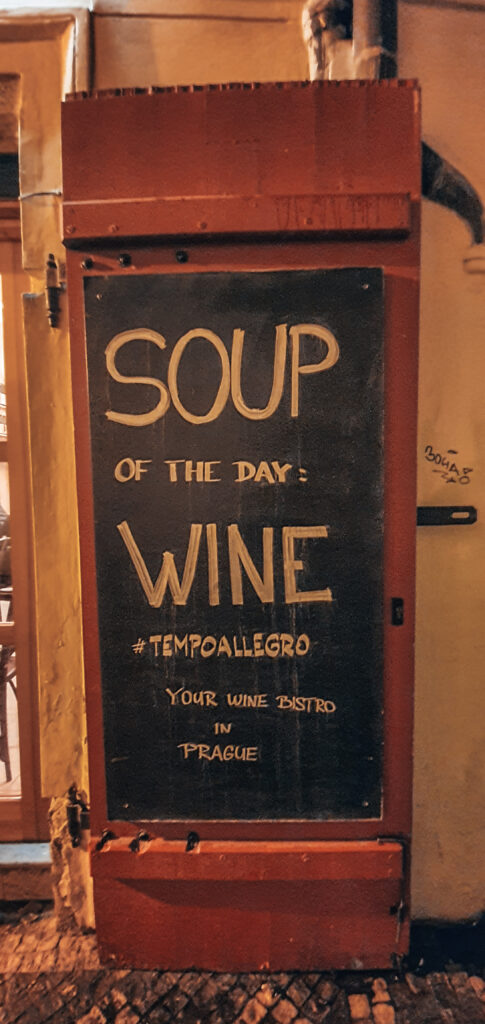 SOUP
OF THE DAY:
WINE
#TEMPOALLEGRO
YOUR WINE BISTRO
IN
PRAGUE